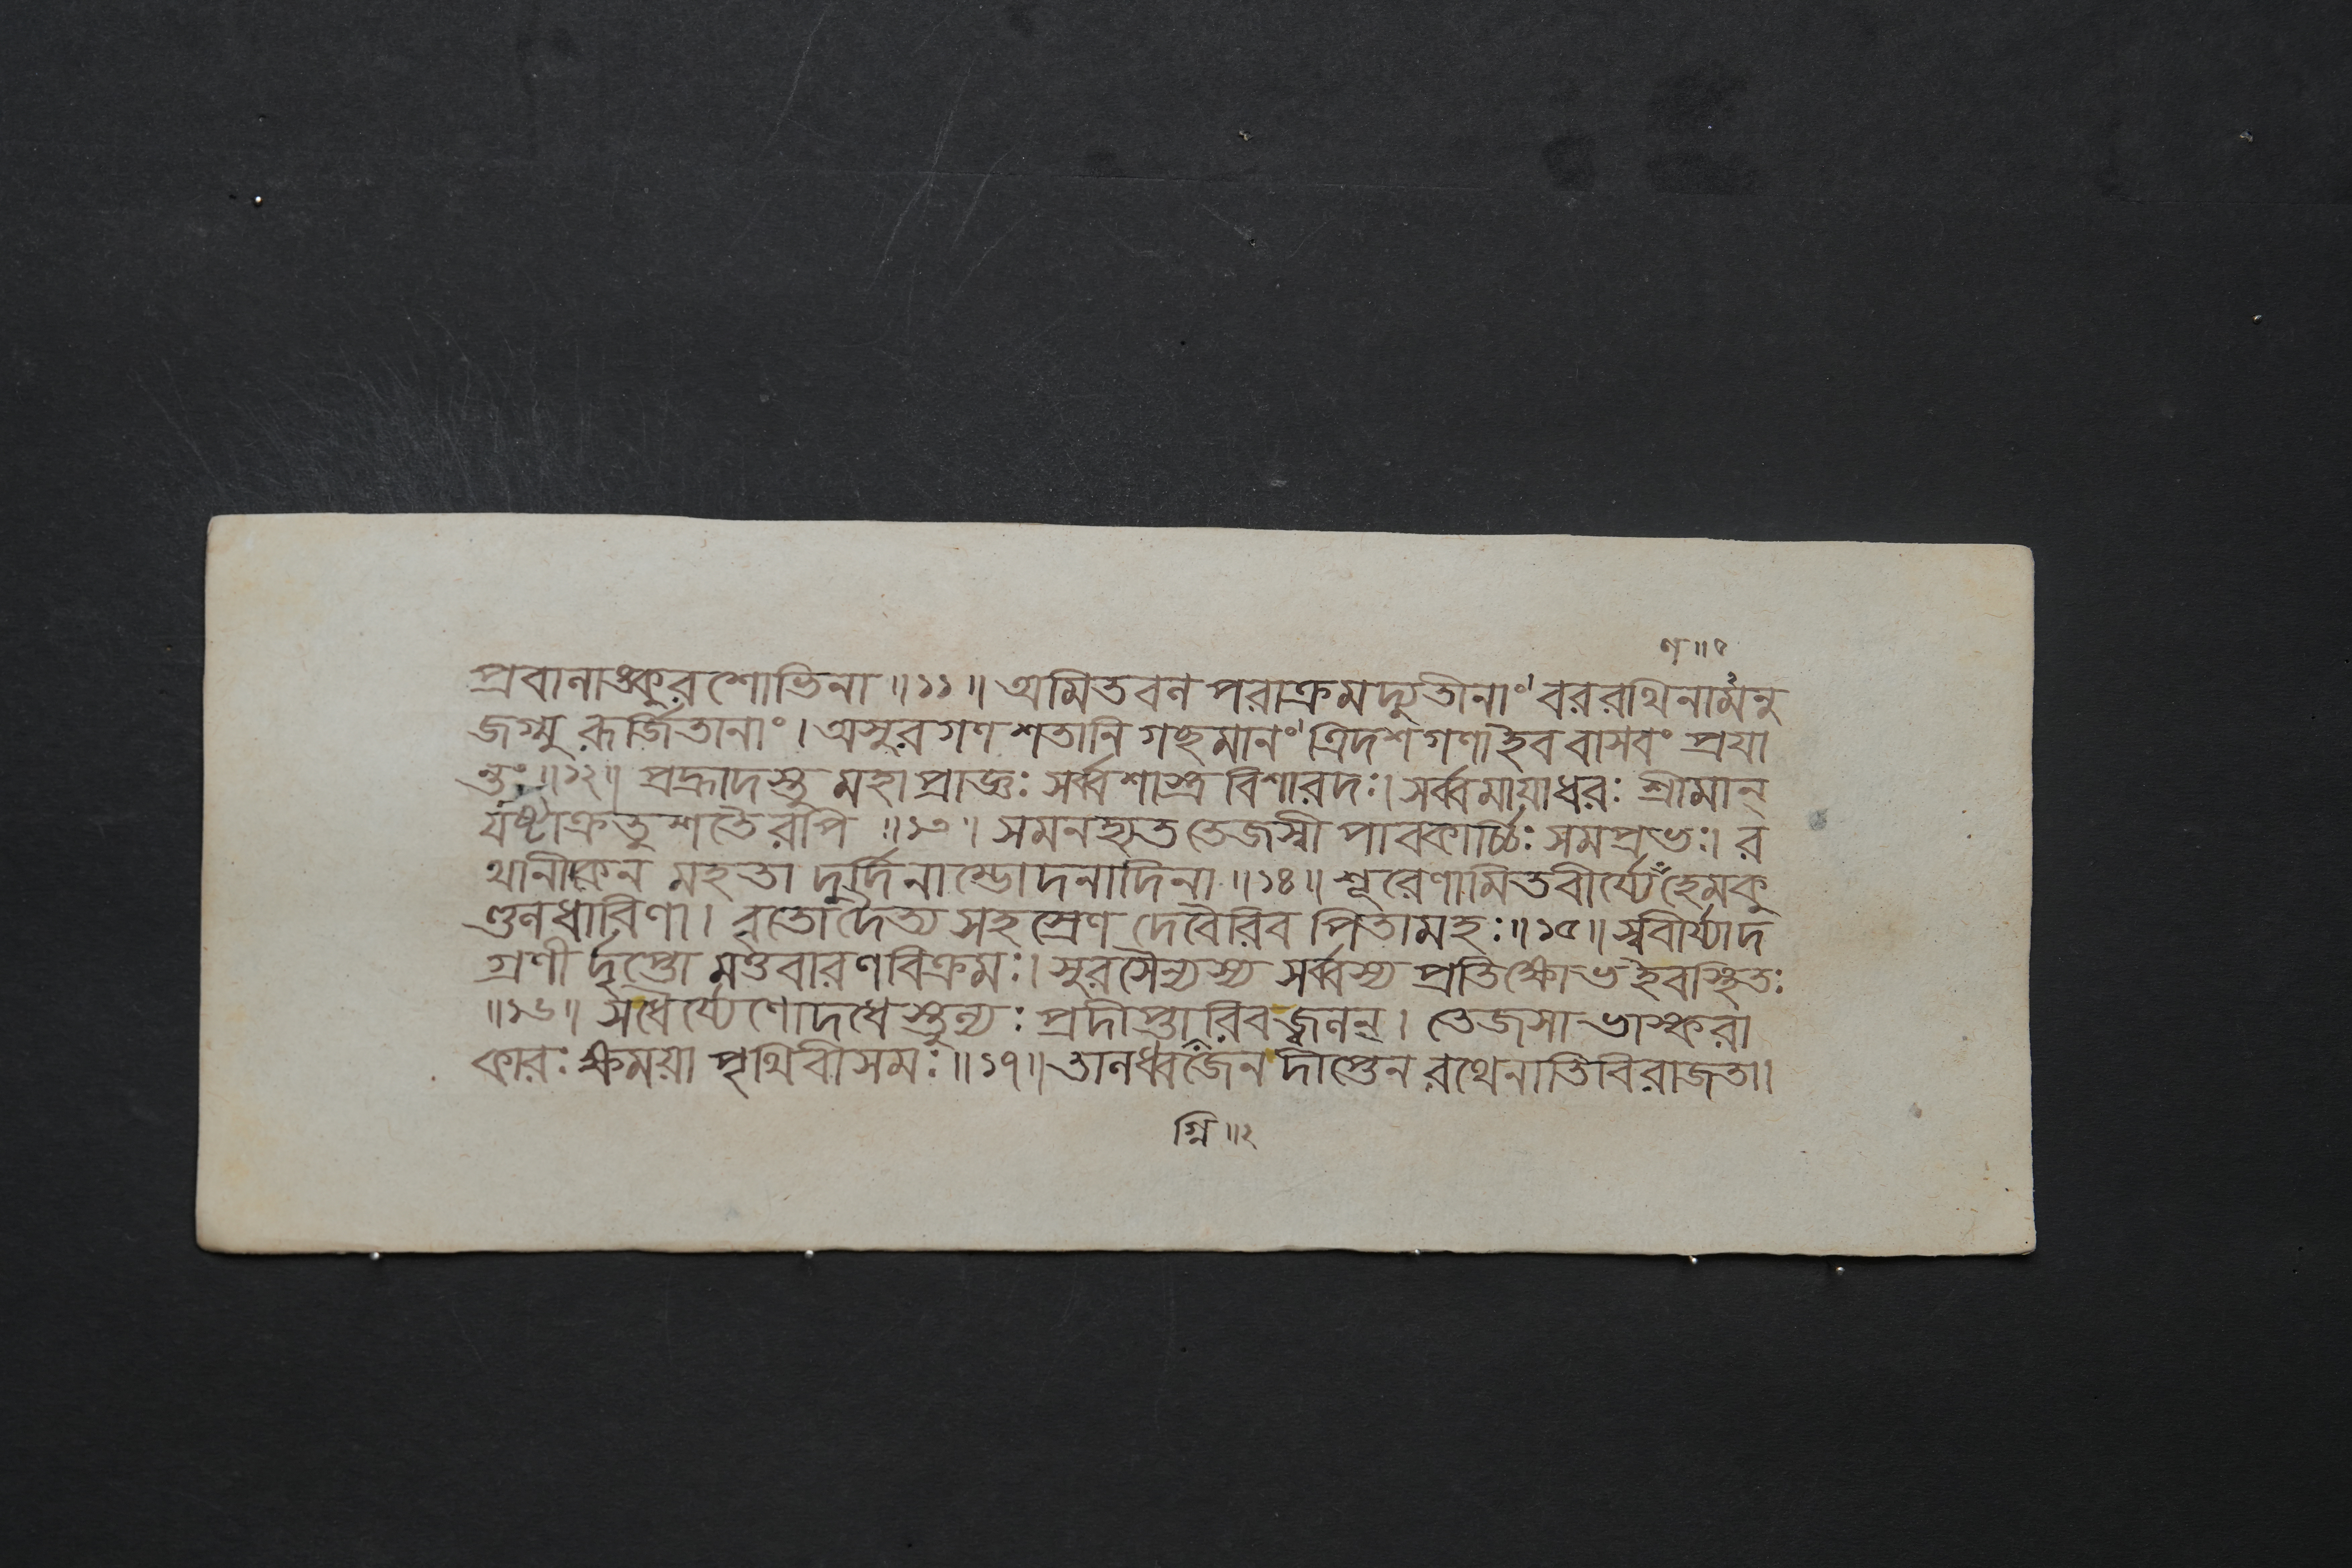 ণ॥१
প্রবানাঙ্কুরশোভিনা॥১১॥অমিতবনপরাক্রমদ্যুতীনাং।বররথিনামনু
জগ্মুরূর্জিতানাং।অসুরগণশতানিগছমানং।ত্রিদশগণাইববাসবংপ্রযা
ন্তং॥১২॥প্রহ্রাদস্তুমহাপ্রাজ্ঞঃসর্ব্বশাস্ত্রবিশারদঃ।সর্ব্বমায়াধরঃশ্রীমান্
যষ্টাক্রতুশতৈরপি॥১৩।সমনহ্যততেজস্বীপাবকার্চ্চিঃসমপ্রভঃ।র
থানীকেনমহতাদুর্দিনাম্ভোদনাদিনা॥১৪॥শূরেণামিতবীর্য্যেহেমকু
ণ্ডনধারিণা।বৃতোদৈত্যসহস্রেণদেবৈরিবপিতামহঃ॥১৫॥স্ববীর্য্যাদ
গ্রণীর্দৃপ্তোমত্তবারণবিক্রমঃ।সুরসৈন্যস্যসর্ব্বস্যপ্রতিক্ষোভইবস্থিতঃ
॥১৬॥সধৈর্য্যেণোদধেস্তুন্যঃপ্রদীপ্তারিবজ্বনন্।তেজসাভাস্করা
কারঃক্ষময়াপৃথিবীসমঃ॥১৭॥তানধ্বজেনদীপ্তেনরথেনাতিবিরাজতা।
গ্নি॥২